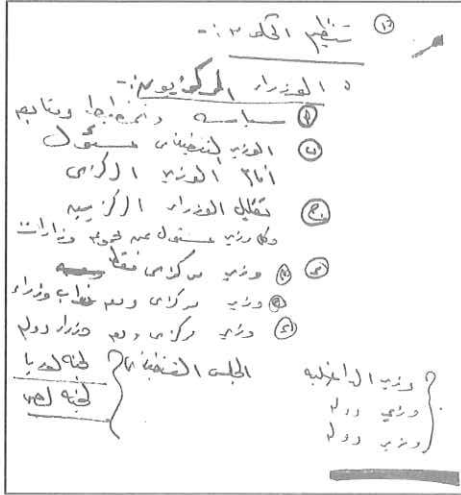 تنظيم الحكومة :-
الوزراء المركزيون :-
(أ) سياسة وتخطيط ومتابعة
(ب) الوزير التنفيذى مسئول
أمام الوزير المركزى
(ج) تقليل الوزراء المركزيين
وكل وزير مسئول عن مجموعة وزارات
وزير مركزى فقط
وزير مركزى ومعه نواب وزراء
وزير مركزى ومعه وزراء دولة
المجلس التنفيذى
لجنة
لجنة
وزير الداخلية
وزير دولة
وزير دولة